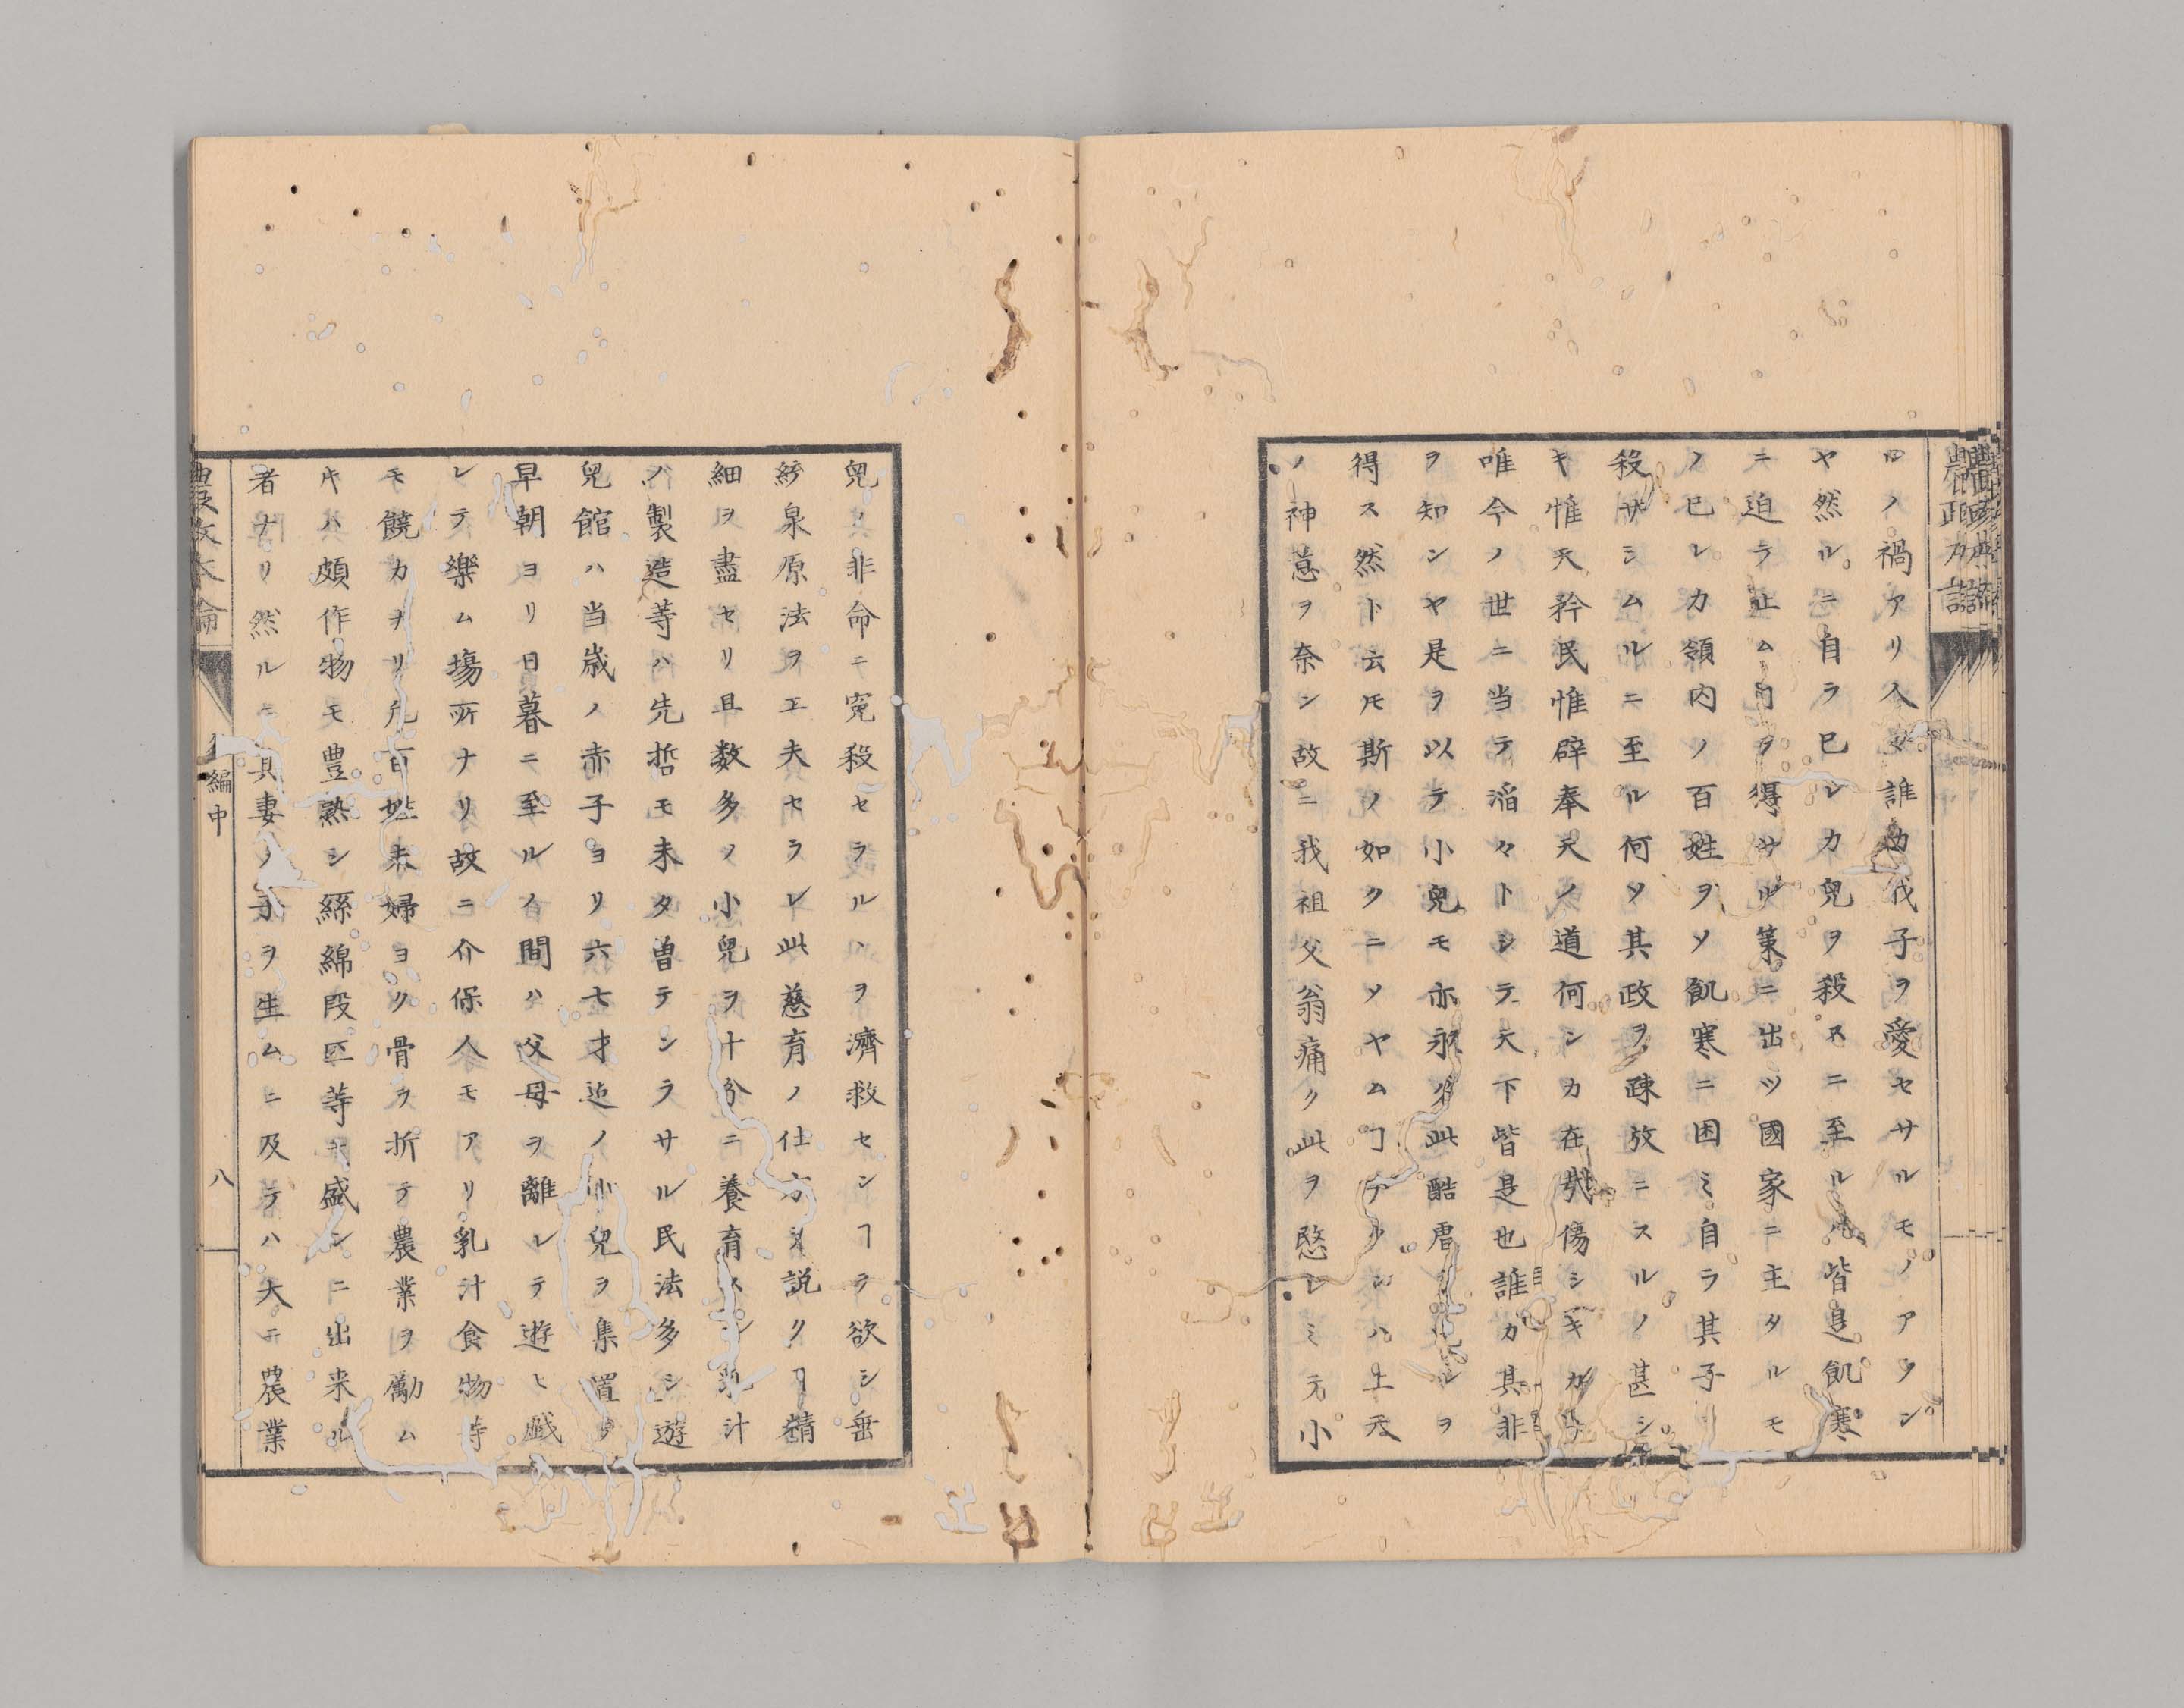 ロノ禍アリ人父誰カ我子ヲ愛セサルモノアラン
ヤ然ルニ自ラ己レカ兒ヲ殺スニ至ルハ皆是飢寒
ニ迫ラ止ム｢ヲ得サル策ニ出ツ國家ニ主タルモ
ノ己レカ領内ノ百姓ヲソ飢寒ニ困ミ自ラ其子
殺サシムルニ至ル何ソ其政ヲ疎放ニスルノ甚シ
キ惟天矜民惟辟奉天ノ道何ンカ在哉傷シキカナ
唯今ノ世ニ当テ滔々トシテ天下皆是也誰カ其非
ヲ知ンヤ是ヲ以テ小兒モ亦永ク此酷虐ヲルヲ
得ス然ト云𪜈斯ノ如クニソヤム｢ナクンハ上天
ノ神慈ヲ奈ン故ニ我祖父翁痛ク此ヲ愍レミテ小
兒ノ非命ニ寃殺セラルヽヲ濟救セン｢ヲ欲シ垂
統泉原法ヲ工夫セラレ此慈育ノ仕方ヲ説ク｢精
細ヲ盡セリ且数多ノ小兒ヲ十分ニ養育スル乳汁
ノ製造等ハ先哲モ未タ曽テシラサル民法多シ遊
兒館ハ当歳ノ赤子ヨリ六七才迠ノ小兒ヲ集置テ
早朝ヨリ日暮ニ至ルノ間ハ父母ヲ離レテ遊ヒ戯
レテ樂ム塲所ナリ故ニ介保人モアリ乳汁食物等
モ饒カヲリ凡百姓夫婦ヨク骨ヲ折テ農業ヲ勵ム
キハ頗作物モ豊熟シ絲綿段匹等モ盛ンニ出来ル
者ナリ然ルニ其妻ノ子ヲ生ムニ及テハ大ニ農業
編中
八